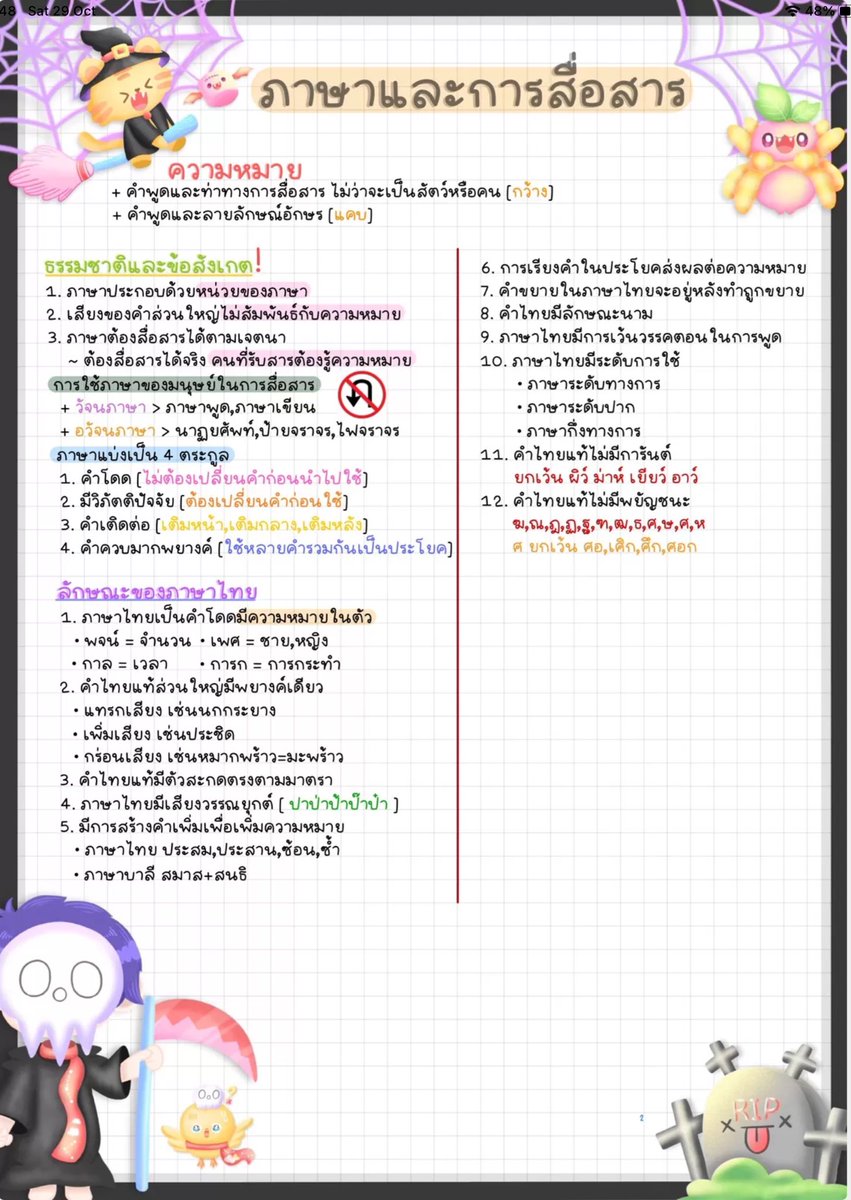 48 Sat 29 Oct
48%
ภาษาและการสื่อสาร
ความหมาย
+ คำพูดและท่าทางการสื่อสาร ไม่ว่าจะเป็นสัตว์หรือคน [กว้าง]
+ คำพูดและลายลักษณ์อักษร [แคบ]
ธรรมชาติและข้อสังเกต!
1. ภาษาประกอบด้วยหน่วยของภาษา
2. เสียงของคำส่วนใหญ่ไม่สัมพันธ์กับความหมาย
3. ภาษาต้องสื่อสารได้ตามเจตนา
~ ต้องสื่อสารได้จริง คนที่รับสารต้องรู้ความหมาย
การใช้ภาษาของมนุษย์ในการสื่อสาร
+ วัจนภาษา > ภาษาพูด,ภาษาเขียน
+ อวัจนภาษา > นาฏยศัพท์,ป้ายจราจร,ไฟจราจร
ภาษาแบ่งเป็น 4 ตระกูล
1. คำโดด [ไม่ต้องเปลี่ยนคำก่อนนำไปใช้]
2. มีวิภัตติปัจจัย [ต้องเปลี่ยนคำก่อนใช้]
3. คำติดต่อ [เติมหน้า,เติมกลาง,เติมหลัง]
4. คำควบมากพยางค์ [ใช้หลายคำรวมกันเป็นประโยค]
ลักษณะของภาษาไทย
1. ภาษาไทยเป็นคำโดดมีความหมายในตัว
• พจน์ = จำนวน • เพศ = ชาย,หญิง
• กาล = เวลา • การก = การกระทำ
2. คำไทยแท้ส่วนใหญ่มีพยางค์เดียว
• แทรกเสียง เช่นนกกระยาง
• เพิ่มเสียง เช่นประชิด
• กร่อนเสียง เช่นหมากพร้าว=มะพร้าว
3. คำไทยแท้มีตัวสะกดตรงตามมาตรา
4. ภาษาไทยมีเสียงวรรณยุกต์ [ ปาป่าป้าป๊าป๋า ]
5. มีการสร้างคำเพิ่มเพื่อเพิ่มความหมาย
• ภาษาไทย ประสม,ประสาน,ซ้อน,ซ้ำ
• ภาษาบาลี สมาส+สนธิ
6. การเรียงคำในประโยคส่งผลต่อความหมาย
7. คำขยายในภาษาไทยจะอยู่หลังทำถูกขยาย
8. คำไทยมีลักษณะนาม
9. ภาษาไทยมีการเว้นวรรคตอนในการพูด
10. ภาษาไทยมีระดับการใช้
• ภาษาระดับทางการ
• ภาษาระดับปาก
• ภาษากึ่งทางการ
11. คำไทยแท้ไม่มีการันต์
ยกเว้น ผิว์ ม่าห์ เยียว์ อาว์
12. คำไทยแท้ไม่มีพยัญชนะ
ศ ยกเว้น ศอ,เศิก,ศึก,ศอก
2
RIP